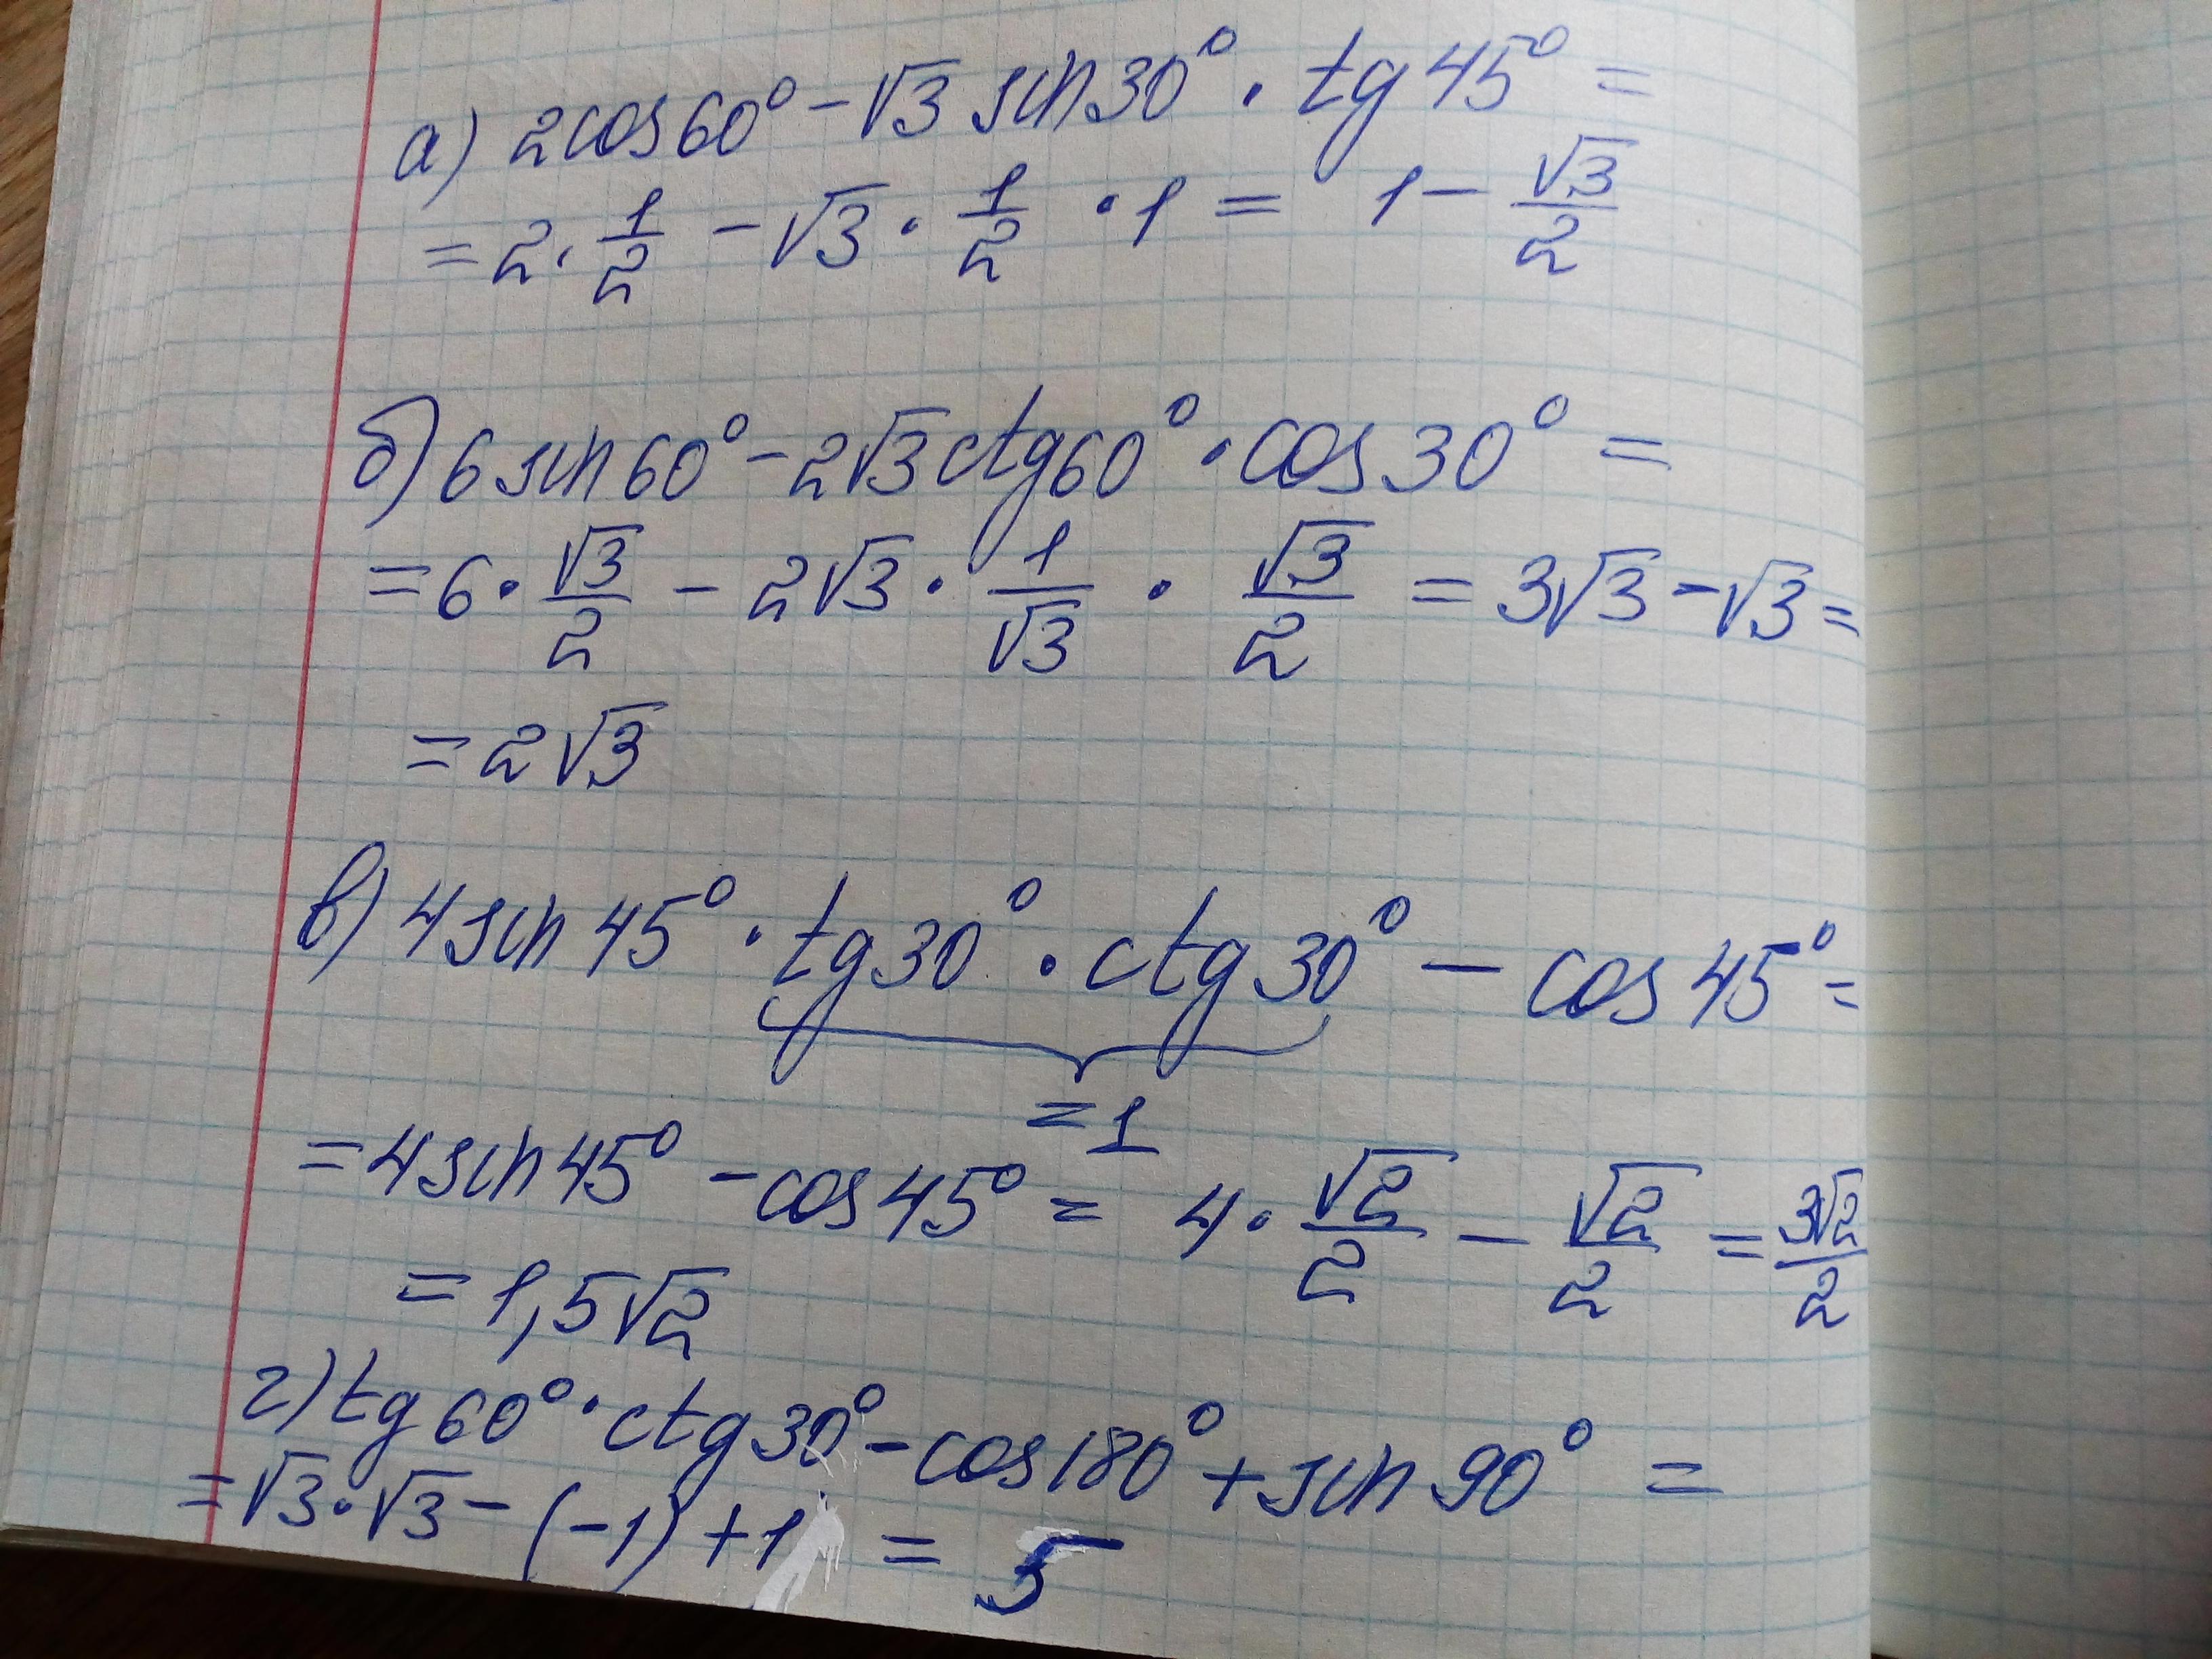 а) 2cos60° - √3 sin30° · tg45° =
= 2 · 1/2 - √3 · 1/2 · 1 = 1 - √3/2
б) 6 sin60° - 2√3 ctg60° · cos30° =
= 6 · √3/2 - 2√3 · 1/√3 · √3/2 = 3√3 - √3 =
= 2√3
в) 4 sin45° · tg30° · ctg30° - cos45° =
= 1
= 4 sin45° - cos45° = 4 · √2/2 - √2/2 = 3√2/2
= 1,5√2
г) tg60° · ctg30° - cos180° + sin90° =
= √3 · √3 - (-1) + 1 = 5